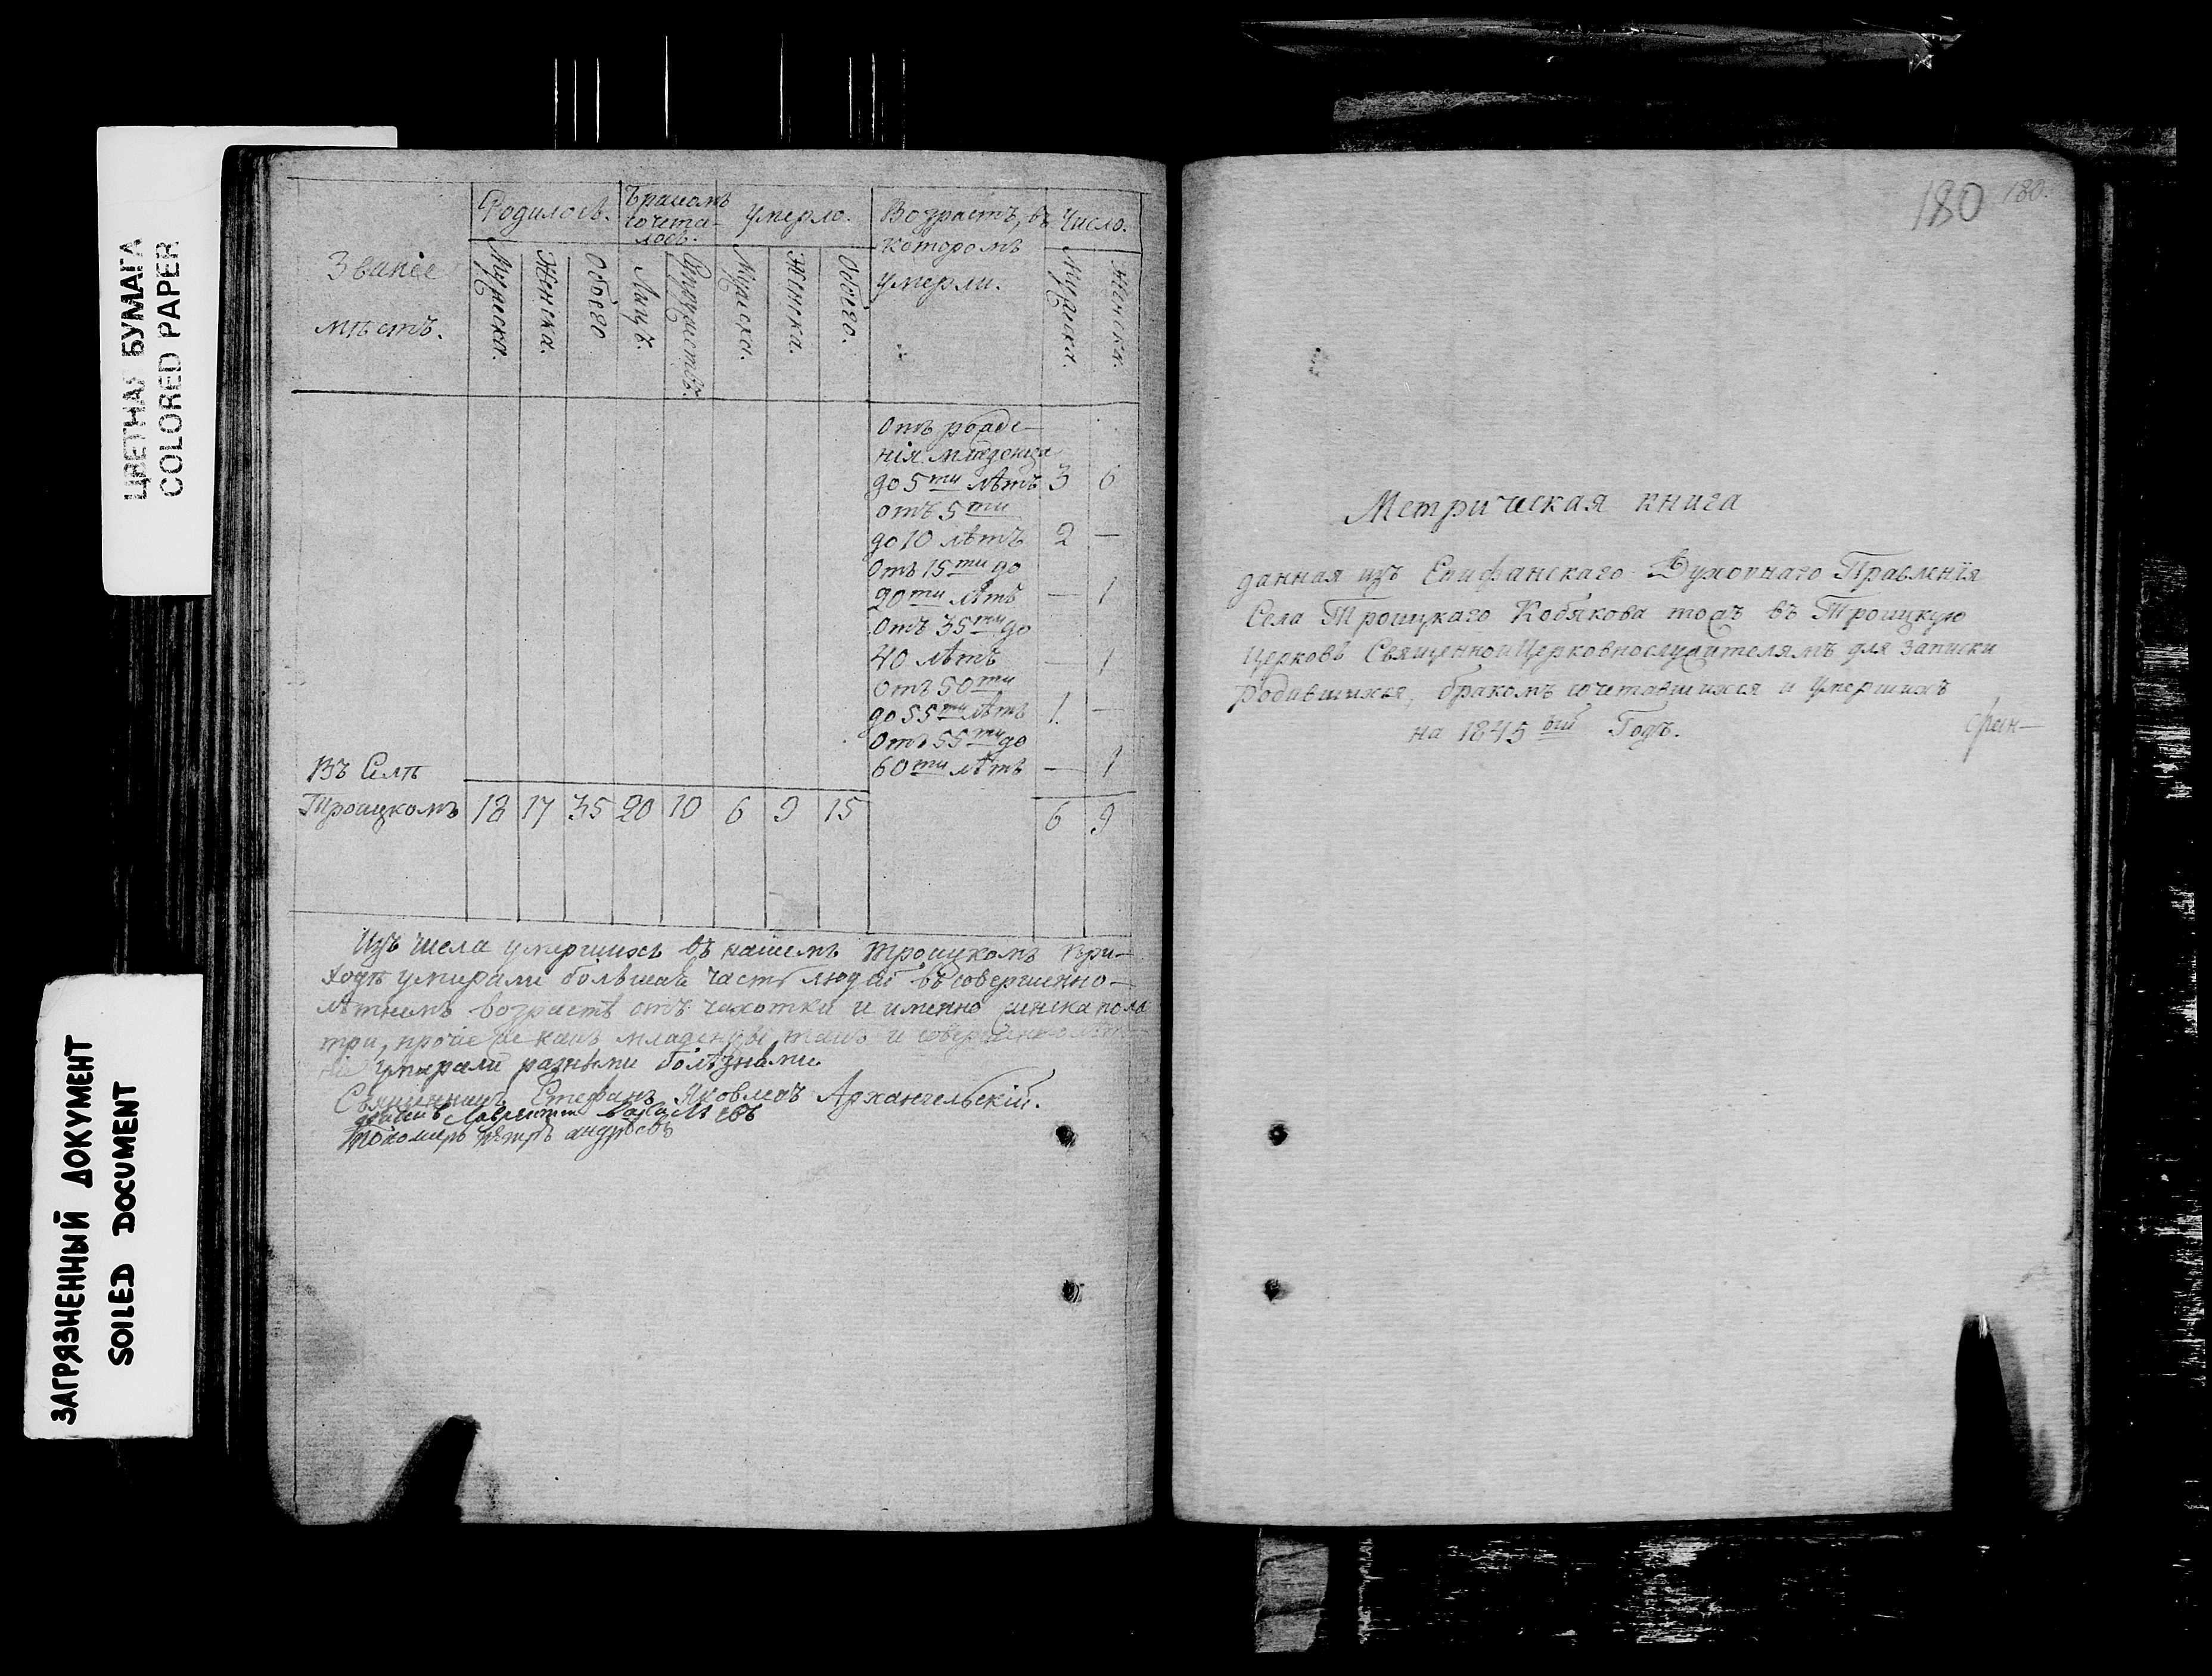 ЦВЕТНАЯ БУМАГА
COLORED PAPER
ЗАГРЯЗНЕННЫЙ ДОКУМЕНТ
SOILED DOCUMENT
Званіе
мѣстъ.
Родилось.
Мужеска.
Женска.
Обоего
Бракомъ
сочета-
лось.
Лицъ.
Супружествъ.
Умерло.
Мужеска.
Женска.
Обоего.
Возрастъ, въ
которомъ
умерли.
Число.
Мужеска.
Женска.
Отъ рожде-
нія младенца
до 5ти лѣтъ 3 6
отъ 5ти
до 10 лѣтъ 2 —
Отъ 15ти до
20ти лѣтъ — 1
Отъ 35ти до
40 лѣтъ — 1
Отъ 50ти
до 55ти лѣтъ 1. —
Отъ 55ти до
60ти лѣтъ — 1
Въ Селѣ
Троицкомъ 18 17 35 20 10 6 9 15 6 9
Изъ числа умершихъ въ нашемъ Троицкомъ При-
ходѣ умирали большая часть людей въ совершенно-
лѣтнемъ возрастѣ отъ чахотки и именно женска пола
три, прочіе же какъ младенцы такъ и совершеннолѣт-
ніе умирали разными болѣзнями
Священникъ Стефанъ Яковлевъ Архангельскій.
дьячекъ Лаврентій
Пономарь Петръ андрѣевъ
180 180.
Метрическая книга
данная изъ Епифанскаго Духовнаго Правленія
Села Троицкаго Кобякова тожъ въ Троицкую
Церковь Священноцерковнослужителямъ для записки
родившихся, бракомъ сочетавшихся и умершихъ
на 1845ый Годъ.